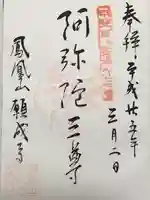 奉拝 平成廿五年
三月二日
阿弥陀三尊
鳳凰山 願成寺